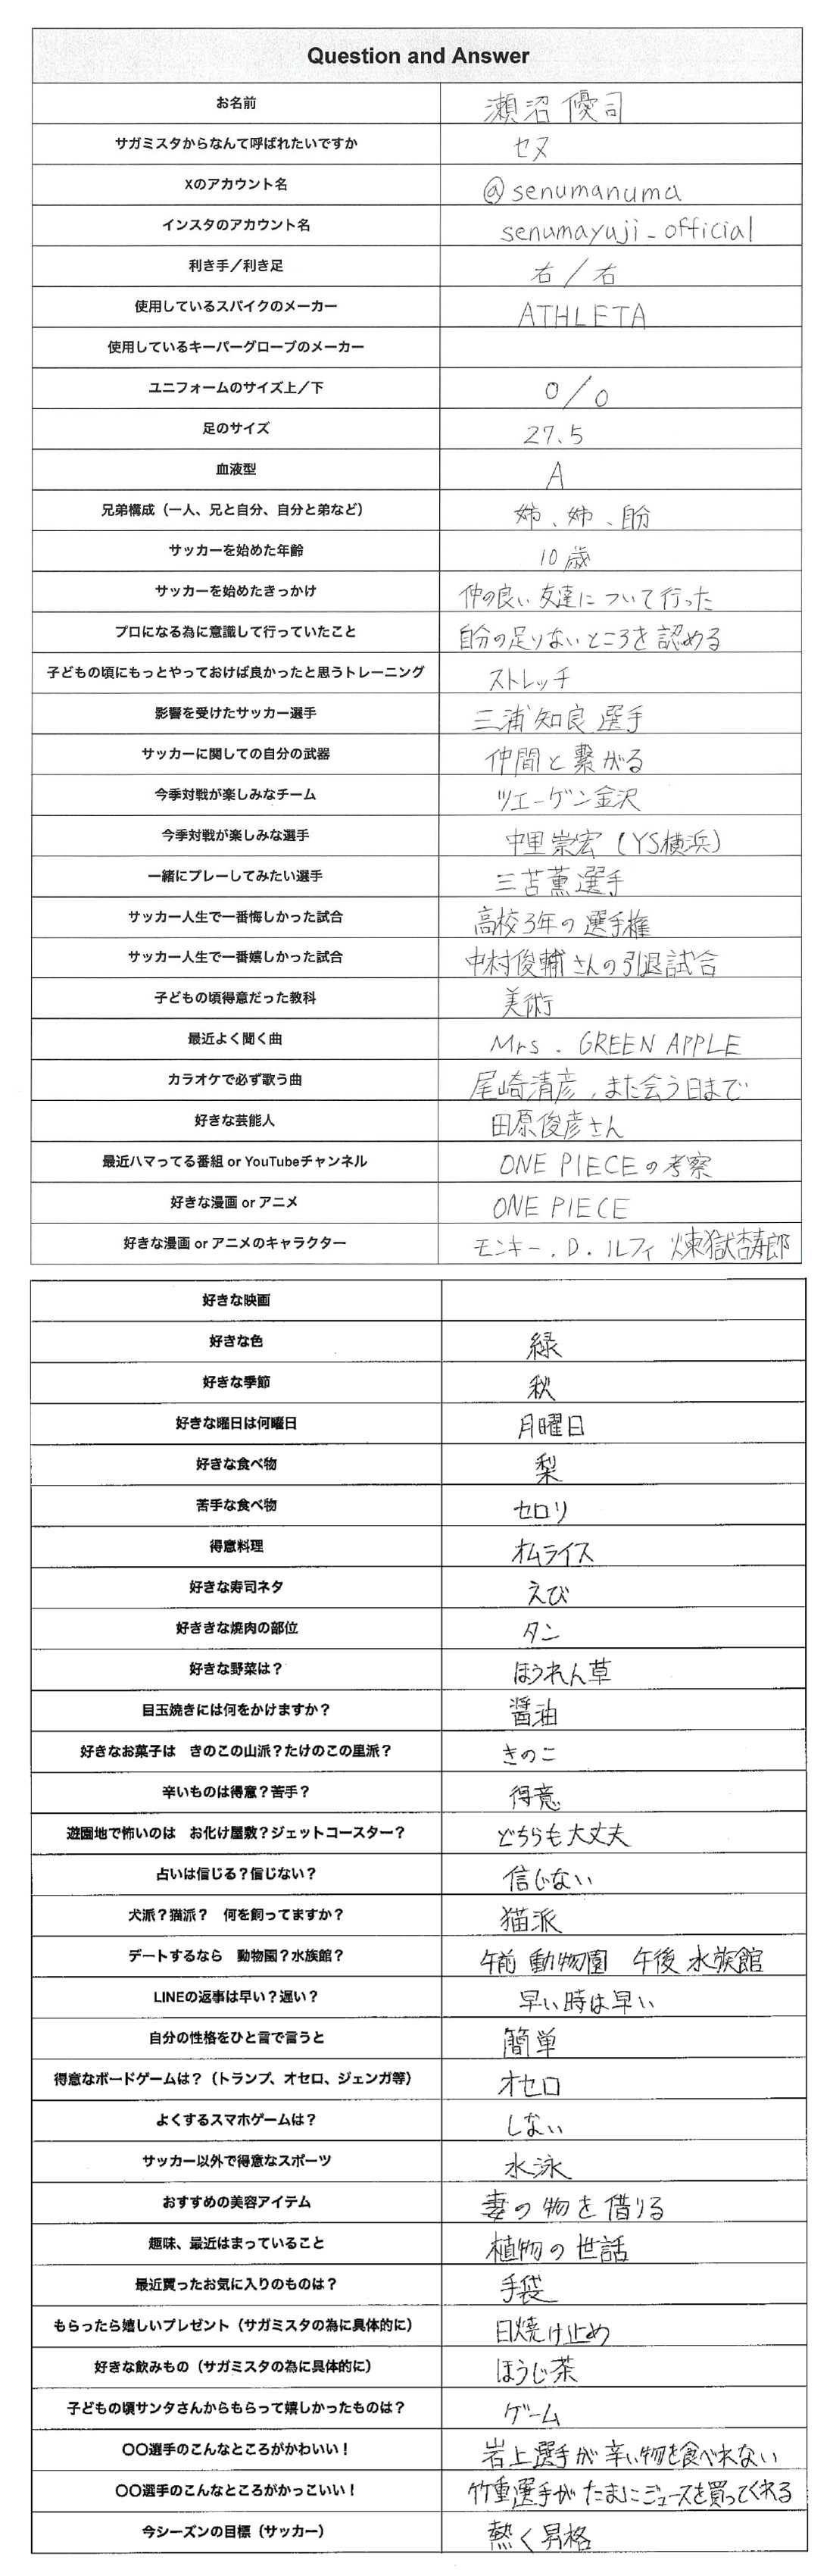 Question and Answer
お名前 瀬沼 優司
サガミスタからなんて呼ばれたいですか セヌ
Xのアカウント名 @senumanuma
インスタのアカウント名 senumayuji_official
利き手／利き足 右／右
使用しているスパイクのメーカー ATHLETA
使用しているキーパーグローブのメーカー
ユニフォームのサイズ上／下 O／O
足のサイズ 27.5
血液型 A
兄弟構成（一人、兄と自分、自分と弟など） 姉、姉、自分
サッカーを始めた年齢 10歳
サッカーを始めたきっかけ 仲の良い友達について行った
プロになる為に意識して行っていたこと 自分の足りないところを認める
子どもの頃にもっとやっておけば良かったと思うトレーニング ストレッチ
影響を受けたサッカー選手 三浦知良選手
サッカーに関しての自分の武器 仲間と繋がる
今季対戦が楽しみなチーム ツエーゲン金沢
今季対戦が楽しみな選手 中里崇宏（YS横浜）
一緒にプレーしてみたい選手 三苫薫選手
サッカー人生で一番悔しかった試合 高校3年の選手権
サッカー人生で一番嬉しかった試合 中村俊輔さんの引退試合
子どもの頃得意だった教科 美術
最近よく聞く曲 Mrs. GREEN APPLE
カラオケで必ず歌う曲 尾崎清彦、また会う日まで
好きな芸能人 田原俊彦さん
最近ハマってる番組 or YouTubeチャンネル ONE PIECEの考察
好きな漫画 or アニメ ONE PIECE
好きな漫画 or アニメのキャラクター モンキー.D.ルフィ 煉獄杏寿郎
好きな映画
好きな色 緑
好きな季節 秋
好きな曜日は何曜日 月曜日
好きな食べ物 梨
苦手な食べ物 セロリ
得意料理 オムライス
好きな寿司ネタ えび
好ききな焼肉の部位 タン
好きな野菜は？ ほうれん草
目玉焼きには何をかけますか？ 醤油
好きなお菓子は　きのこの山派？たけのこの里派？ きのこ
辛いものは得意？苦手？ 得意
遊園地で怖いのは　お化け屋敷？ジェットコースター？ どちらも大丈夫
占いは信じる？信じない？ 信じない
犬派？猫派？　何を飼ってますか？ 猫派
デートするなら　動物園？水族館？ 午前 動物園　午後 水族館
LINEの返事は早い？遅い？ 早い時は早い
自分の性格をひと言で言うと 簡単
得意なボードゲームは？（トランプ、オセロ、ジェンガ等） オセロ
よくするスマホゲームは？ しない
サッカー以外で得意なスポーツ 水泳
おすすめの美容アイテム 妻の物を借りる
趣味、最近はまっていること 植物の世話
最近買ったお気に入りのものは？ 手袋
もらったら嬉しいプレゼント（サガミスタの為に具体的に） 日焼け止め
好きな飲みもの（サガミスタの為に具体的に） ほうじ茶
子どもの頃サンタさんからもらって嬉しかったものは？ ゲーム
〇〇選手のこんなところがかわいい！ 岩上選手が辛い物を食べれない
〇〇選手のこんなところがかっこいい！ 竹重選手がたまにジュースを買ってくれる
今シーズンの目標（サッカー） 熱く昇格